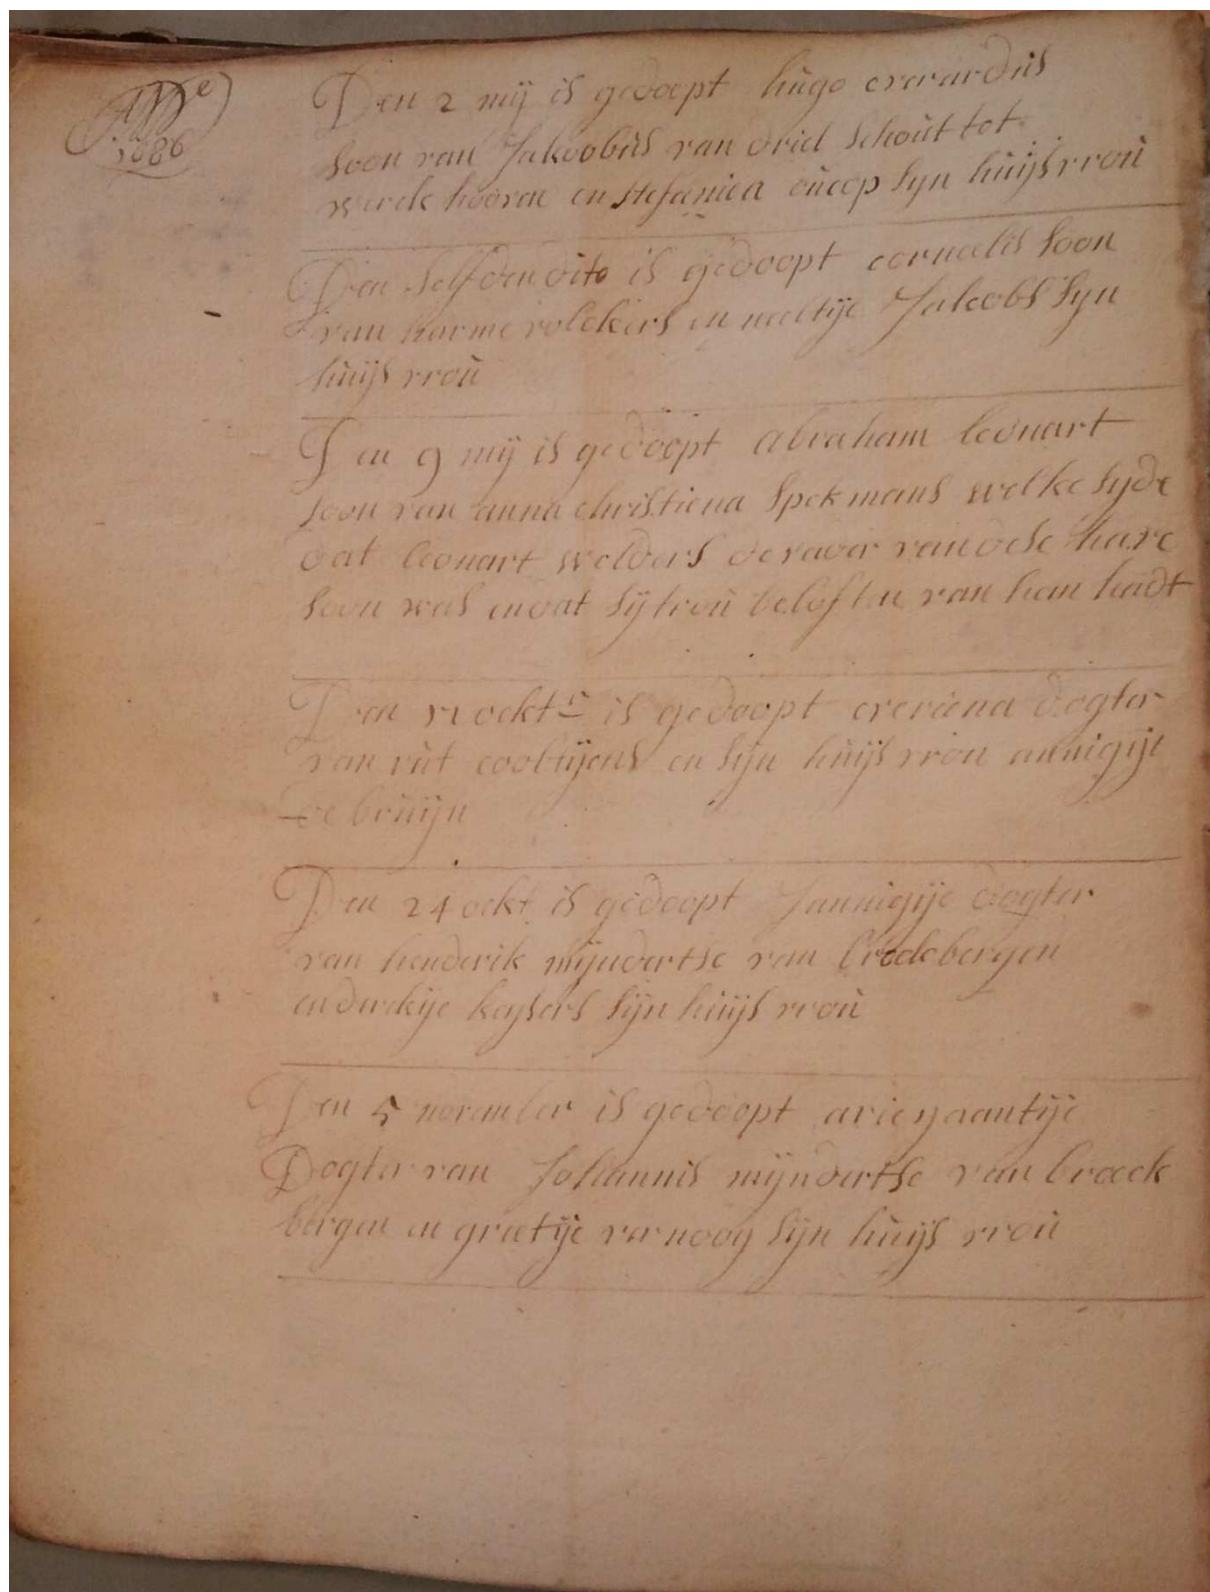 1686
Den 2 mij is gedoopt hùgo everardùs
soon van Jakoobùs van driel schoùt tot
werckhooven en stefaniea oùcoop syn hùijs vroù
Den selfden dito is gedoopt cornelis soon
van harme volckers en neeltije Jakobs syn
hùijs vroù
Den 9 mij is gedoopt abraham leonart
soon van anna christiena spekmans welke syde
dat leonart welders de vader van dese hare
soon was en dat sij troù beloften van hem hadt
Den 17 ockt is gedoopt everiena dogter
van rùt cooltijens en sijn hùijs vroù annigije
de brùijn
Den 24 ockt is gedoopt Jannigije dogter
van henderik mijndertse van bredebergen
en dirckije keysers sijn hùijs vroù
Den 5 november is gedoopt ariejaantije
Dogter van Johannis mijndertse van breek
bergen en grietije vernooy sijn hùijs vroù